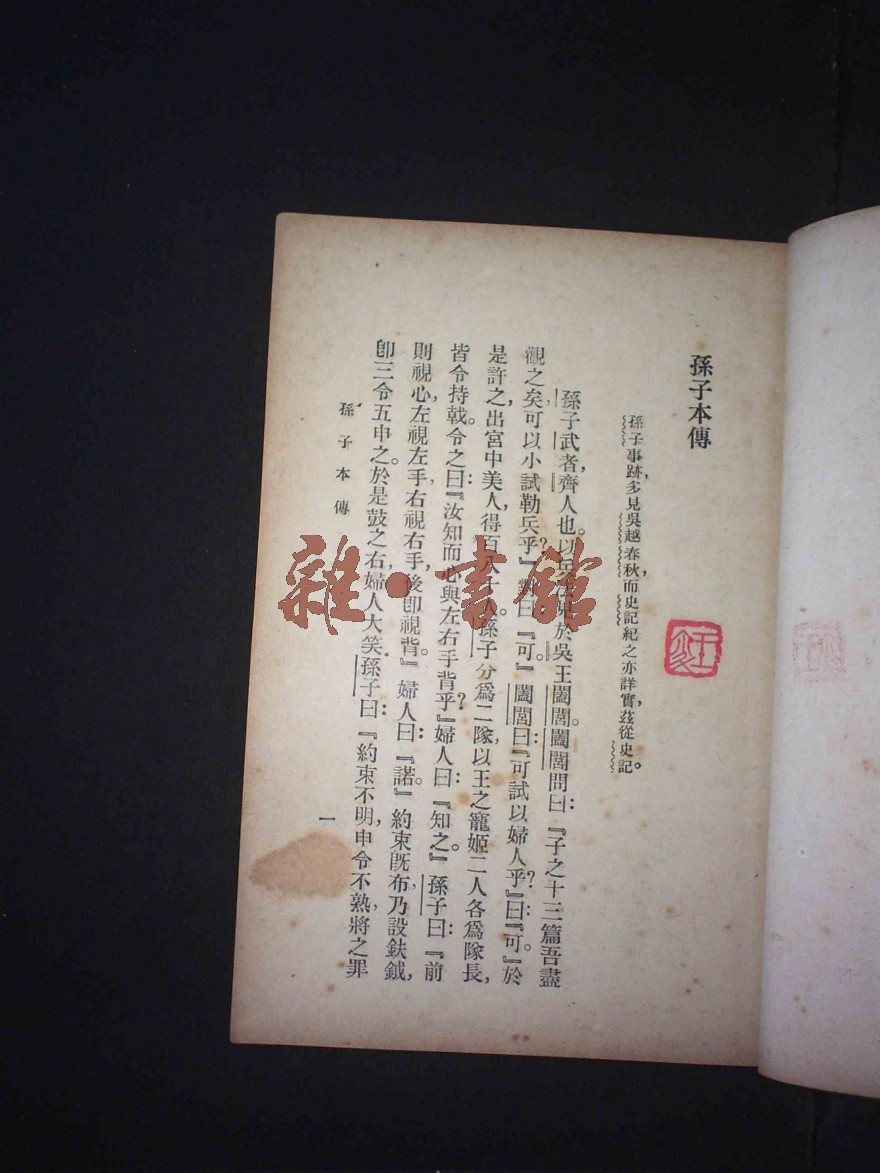 孫子本傳
孫子事跡,多見吳越春秋,而史記紀之亦詳實,茲從史記。
孫子武者,齊人也。以兵法見於吳王闔閭。闔閭問曰:『子之十三篇吾盡
觀之矣,可以小試勒兵乎?』對曰:『可。』闔閭曰:『可試以婦人乎?』曰:『可。』於
是許之,出宮中美人,得百八十人。孫子分爲二隊,以王之寵姬二人各爲隊長,
皆令持戟。令之曰:『汝知而心與左右手背乎?』婦人曰:『知之。』孫子曰:『前
則視心,左視左手,右視右手,後卽視背。』婦人曰:『諾。』約束旣布,乃設鈇鉞,
卽三令五申之。於是鼓之右,婦人大笑。孫子曰:『約束不明,申令不熟,將之罪
孫子本傳
一
雜·書館